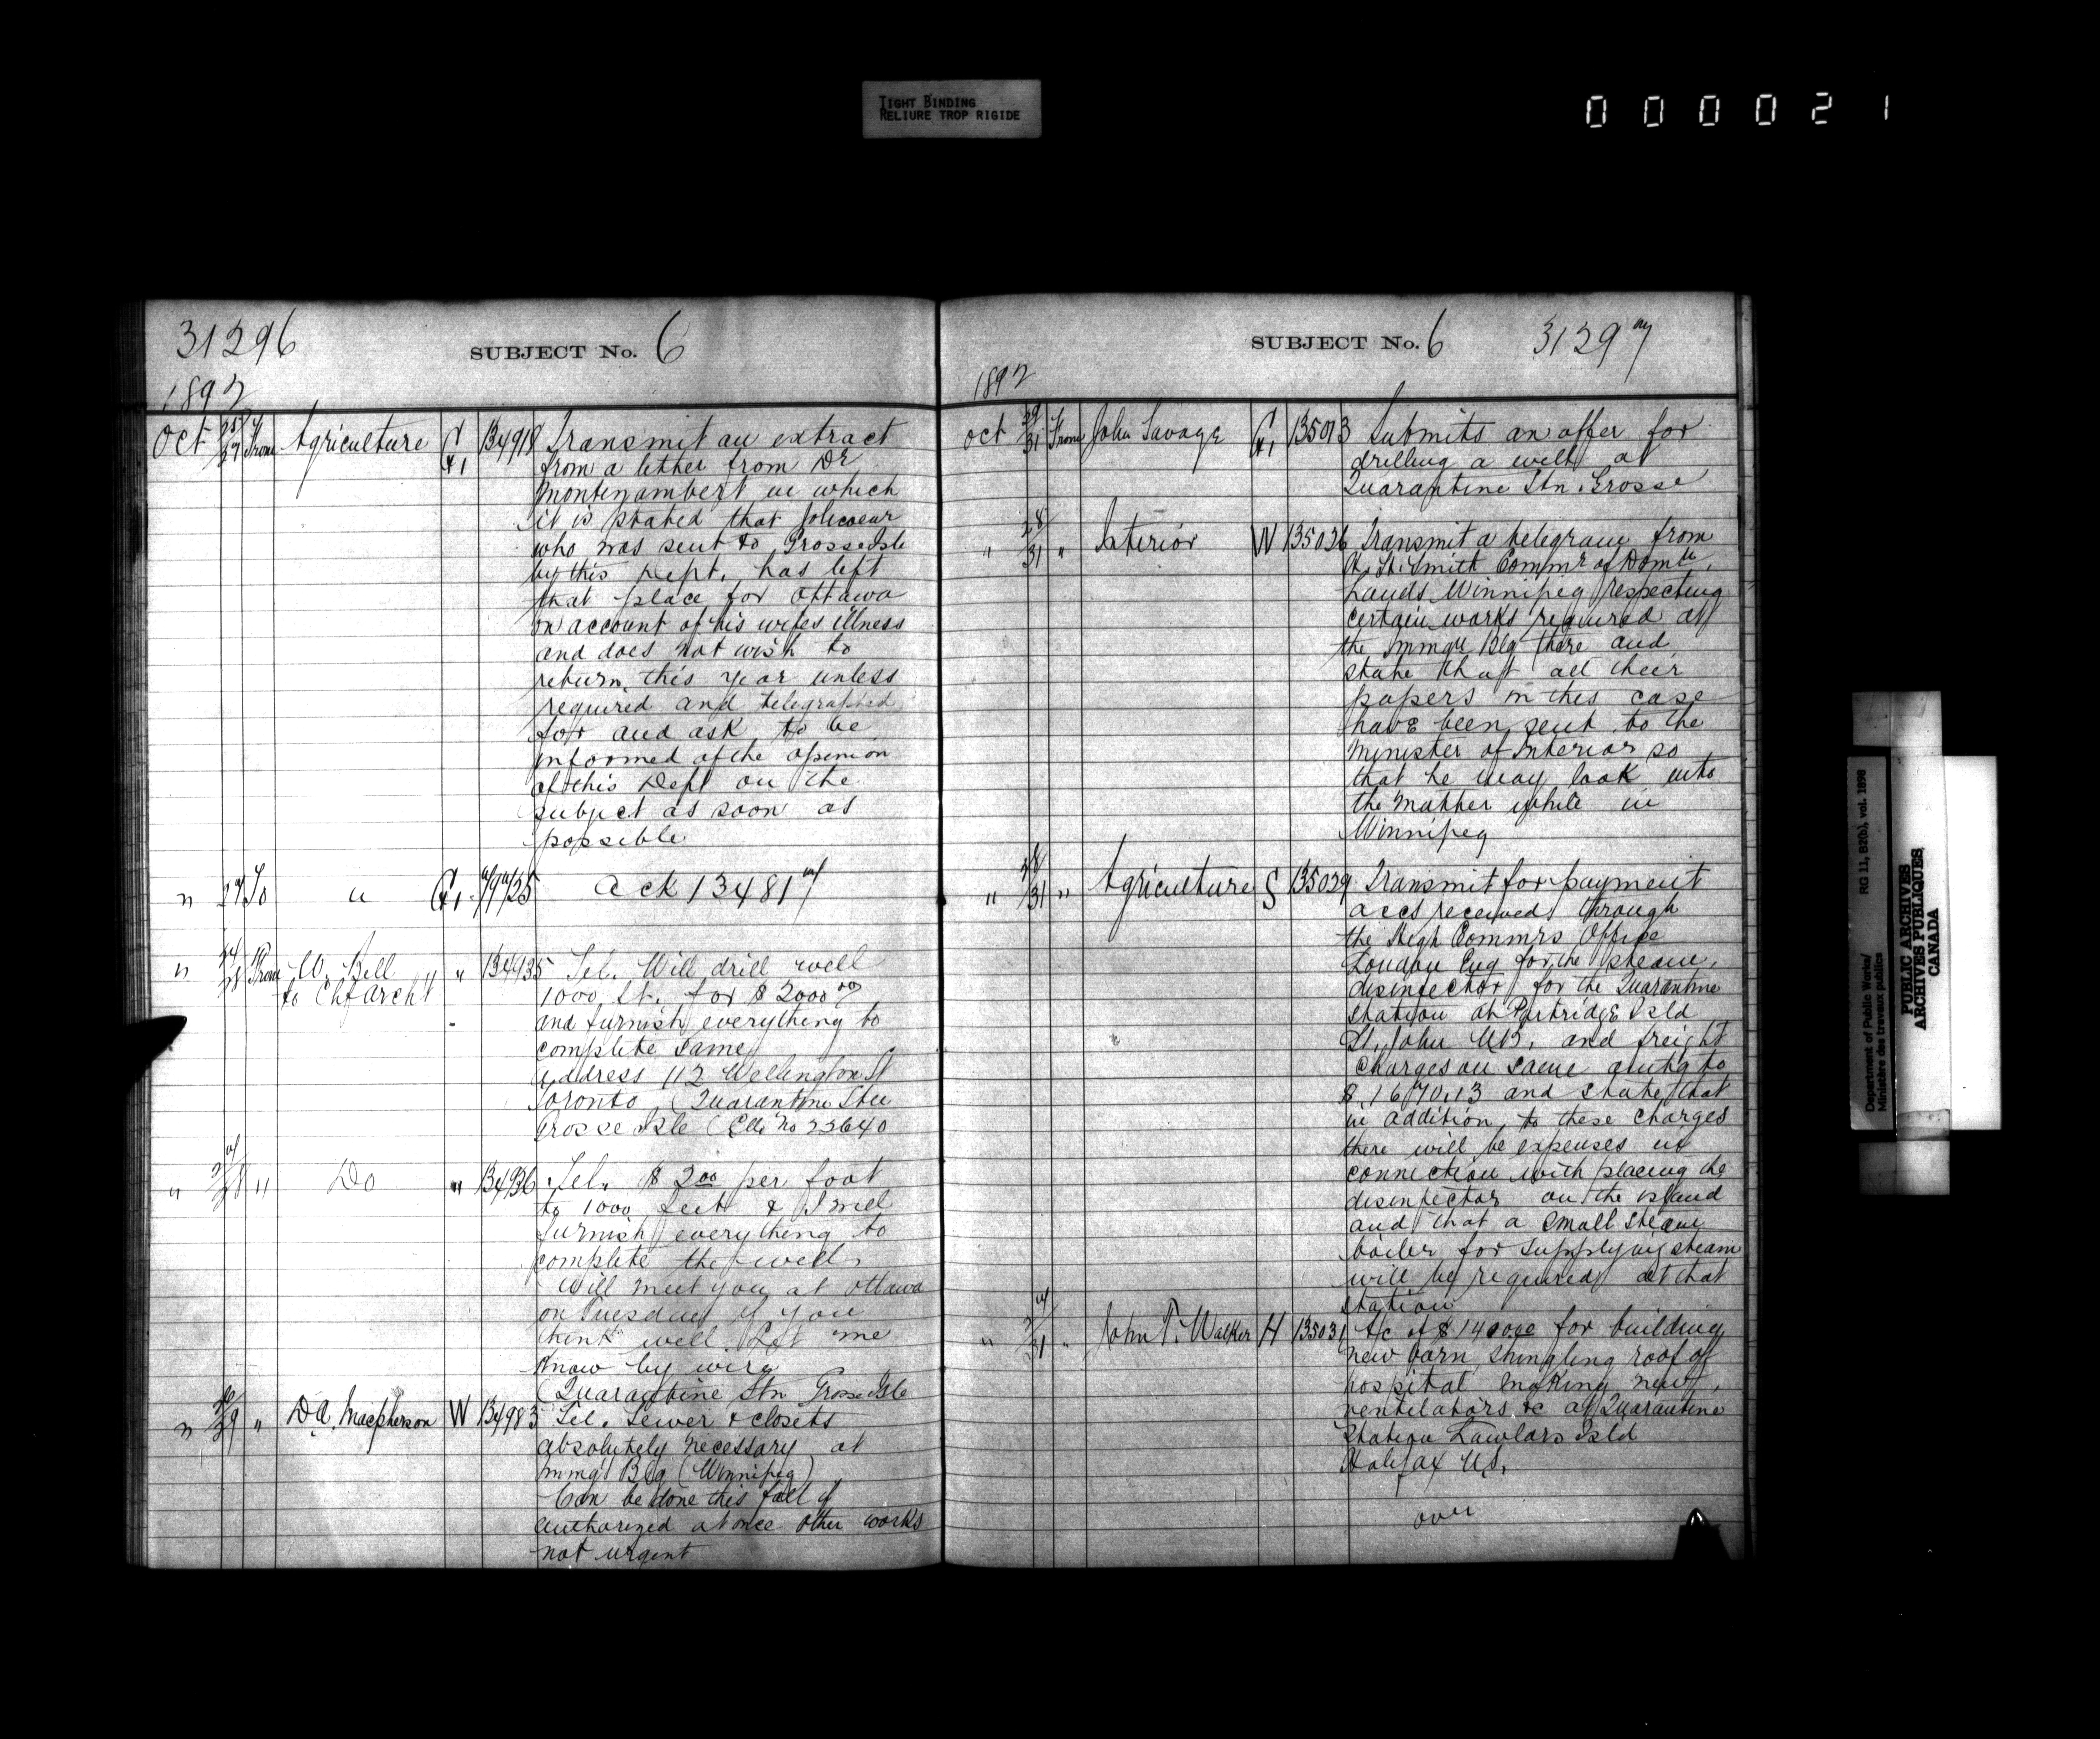 TIGHT BINDING
RELIURE TROP RIGIDE
000021
31296
SUBJECT No. 6
1892
Oct 25/27 From Agriculture G1 134918 Transmit an extract
from a letter from Dr
Montizambert in which
it is stated that
who was sent to Grosse Isle
by this Dept. has left
that place for Ottawa
on account of his wifes illness
and does not wish to
return this year unless
required and telegraphed
for and ask to be
informed of the opinion
of this Dept on the
subject as soon as
possible
" 27 To " G1 Ack 134817
" From W. Bell " 134935 Tel. Will drill well
to Chf Archt 1000 ft. for $2000 00
and furnish everything to
complete same
Address 112 Wellington St
Toronto (Quarantine Stn
Grosse Isle (Elli No 22640
" 27/28 " Do " 134936 Tel. $2 00 per foot
to 1000 feet & I will
furnish everything to
complete the well
Will meet you at Ottawa
on Tuesday if you
think well. Let me
know by wire
(Quarantine Stn Grosse Isle
" 29 " D.A. Macpherson W 134983 Tel. Sewer & closets
absolutely necessary at
Immgt Blg (Winnipeg)
Can be done this fall if
authorized at once other works
not urgent
SUBJECT No. 6 31297
1892
Oct 29/31 From John Savage G1 135013 Submits an offer for
drilling a well at
Quarantine Stn. Grosse
" 28/31 " Interior W 135026 Transmit a telegram from
H. H. Smith Commr of Domn
Lands Winnipeg respecting
certain works required at
the Immgn Blg there and
state that all their
papers in this case
have been sent to the
Minister of Interior so
that he may look into
the matter while in
Winnipeg
" 28/31 " Agriculture S 135029 Transmit for payment
accs received through
the High Commrs Office
London Eng for the steam
disinfector for the Quarantine
Station at Partridge Isld
St. John N.B. and freight
charges on same amtg to
$1670.13 and state that
in addition to these charges
there will be expenses in
connection with placing the
disinfector on the island
and that a small steam
boiler for supplying steam
will be required at that
station
" 27/31 " John T. Walker H 135031 A/c of $ for building
new barn, shingling roof of
hospital making new
ventilators &c at Quarantine
Station Lawlors Isld
Halifax N.S.
over
Department of Public Works/ RG 11, B2(b), vol. 1898
Ministère des travaux publics
PUBLIC ARCHIVES
ARCHIVES PUBLIQUES
CANADA